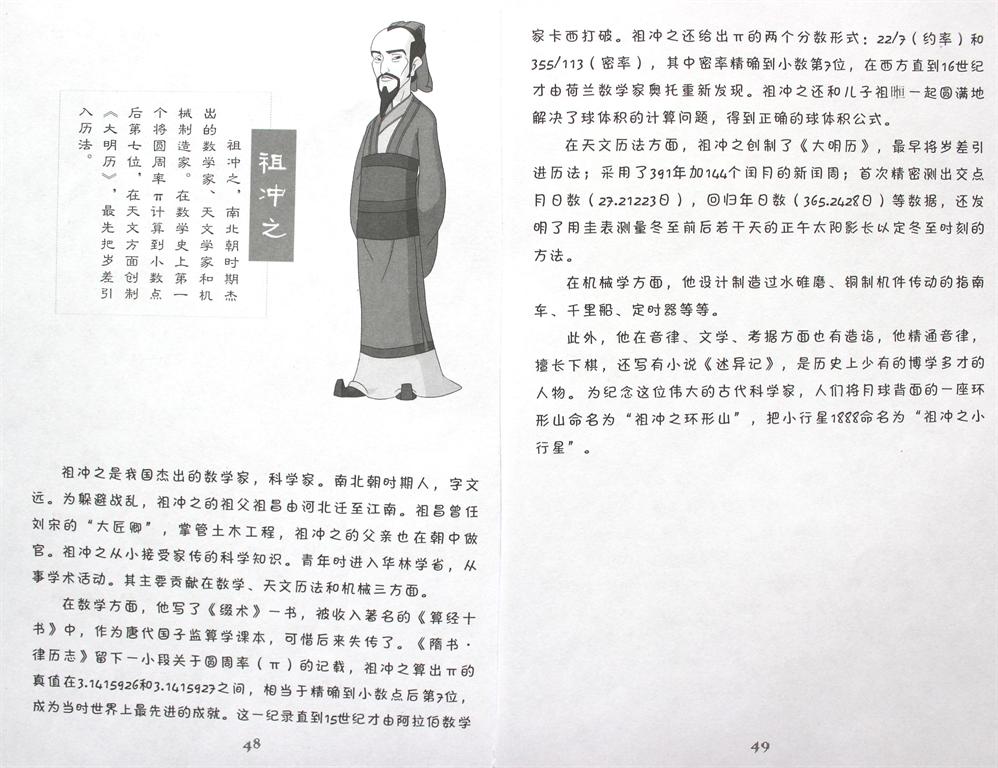 祖冲之
祖冲之，南北朝时期杰
出的数学家、天文学家和机
械制造家。在数学史上第一
个将圆周率π计算到小数点
后第七位，在天文方面创制
《大明历》，最先把岁差引
入历法。
祖冲之是我国杰出的数学家，科学家。南北朝时期人，字文
远。为躲避战乱，祖冲之的祖父祖昌由河北迁至江南。祖昌曾任
刘宋的“大匠卿”，掌管土木工程，祖冲之的父亲也在朝中做
官。祖冲之从小接受家传的科学知识。青年时进入华林学省，从
事学术活动。其主要贡献在数学、天文历法和机械三方面。
在数学方面，他写了《缀术》一书，被收入著名的《算经十
书》中，作为唐代国子监算学课本，可惜后来失传了。《隋书·
律历志》留下一小段关于圆周率（π）的记载，祖冲之算出π的
真值在3.1415926和3.1415927之间，相当于精确到小数点后第7位，
成为当时世界上最先进的成就。这一纪录直到15世纪才由阿拉伯数学
48
家卡西打破。祖冲之还给出π的两个分数形式：22/7（约率）和
355/113（密率），其中密率精确到小数第7位，在西方直到16世纪
才由荷兰数学家奥托重新发现。祖冲之还和儿子祖暅一起圆满地
解决了球体积的计算问题，得到正确的球体积公式。
在天文历法方面，祖冲之创制了《大明历》，最早将岁差引
进历法；采用了391年加144个闰月的新闰周；首次精密测出交点
月日数（27.21223日），回归年日数（365.2428日）等数据，还发
明了用圭表测量冬至前后若干天的正午太阳影长以定冬至时刻的
方法。
在机械学方面，他设计制造过水碓磨、铜制机件传动的指南
车、千里船、定时器等等。
此外，他在音律、文学、考据方面也有造诣，他精通音律，
擅长下棋，还写有小说《述异记》，是历史上少有的博学多才的
人物。为纪念这位伟大的古代科学家，人们将月球背面的一座环
形山命名为“祖冲之环形山”，把小行星1888命名为“祖冲之小
行星”。
49